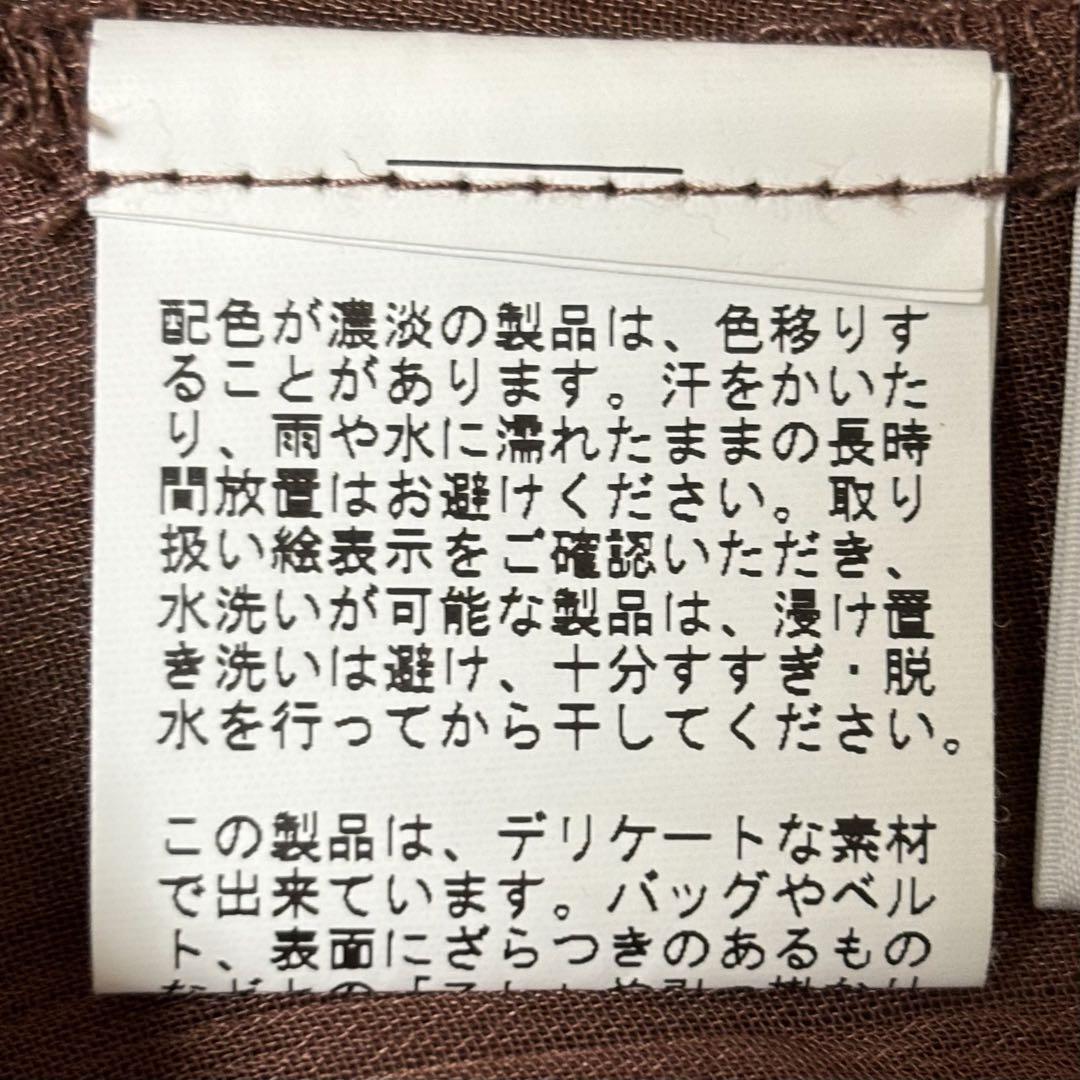 配色が濃淡の製品は、色移りす
ることがあります。汗をかいた
り、雨や水に濡れたままの長時
間放置はお避けください。取り
扱い絵表示をご確認いただき、
水洗いが可能な製品は、浸け置
き洗いは避け、十分すすぎ・脱
水を行ってから干してください。
この製品は、デリケートな素材
で出来ています。バッグやベル
ト、表面にざらつきのあるもの